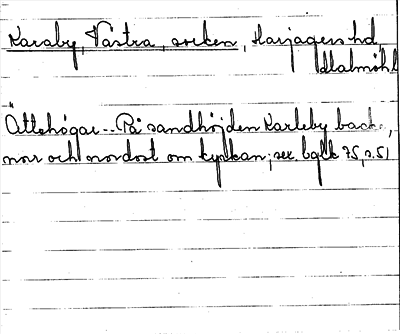 Karaby, Västra, socken, Harjagers hd
Malmöh. l
Ättehögar -- På sandhöjden Karleby back-,
norr och nordost om kyrkan; se bglb 75, s. 51